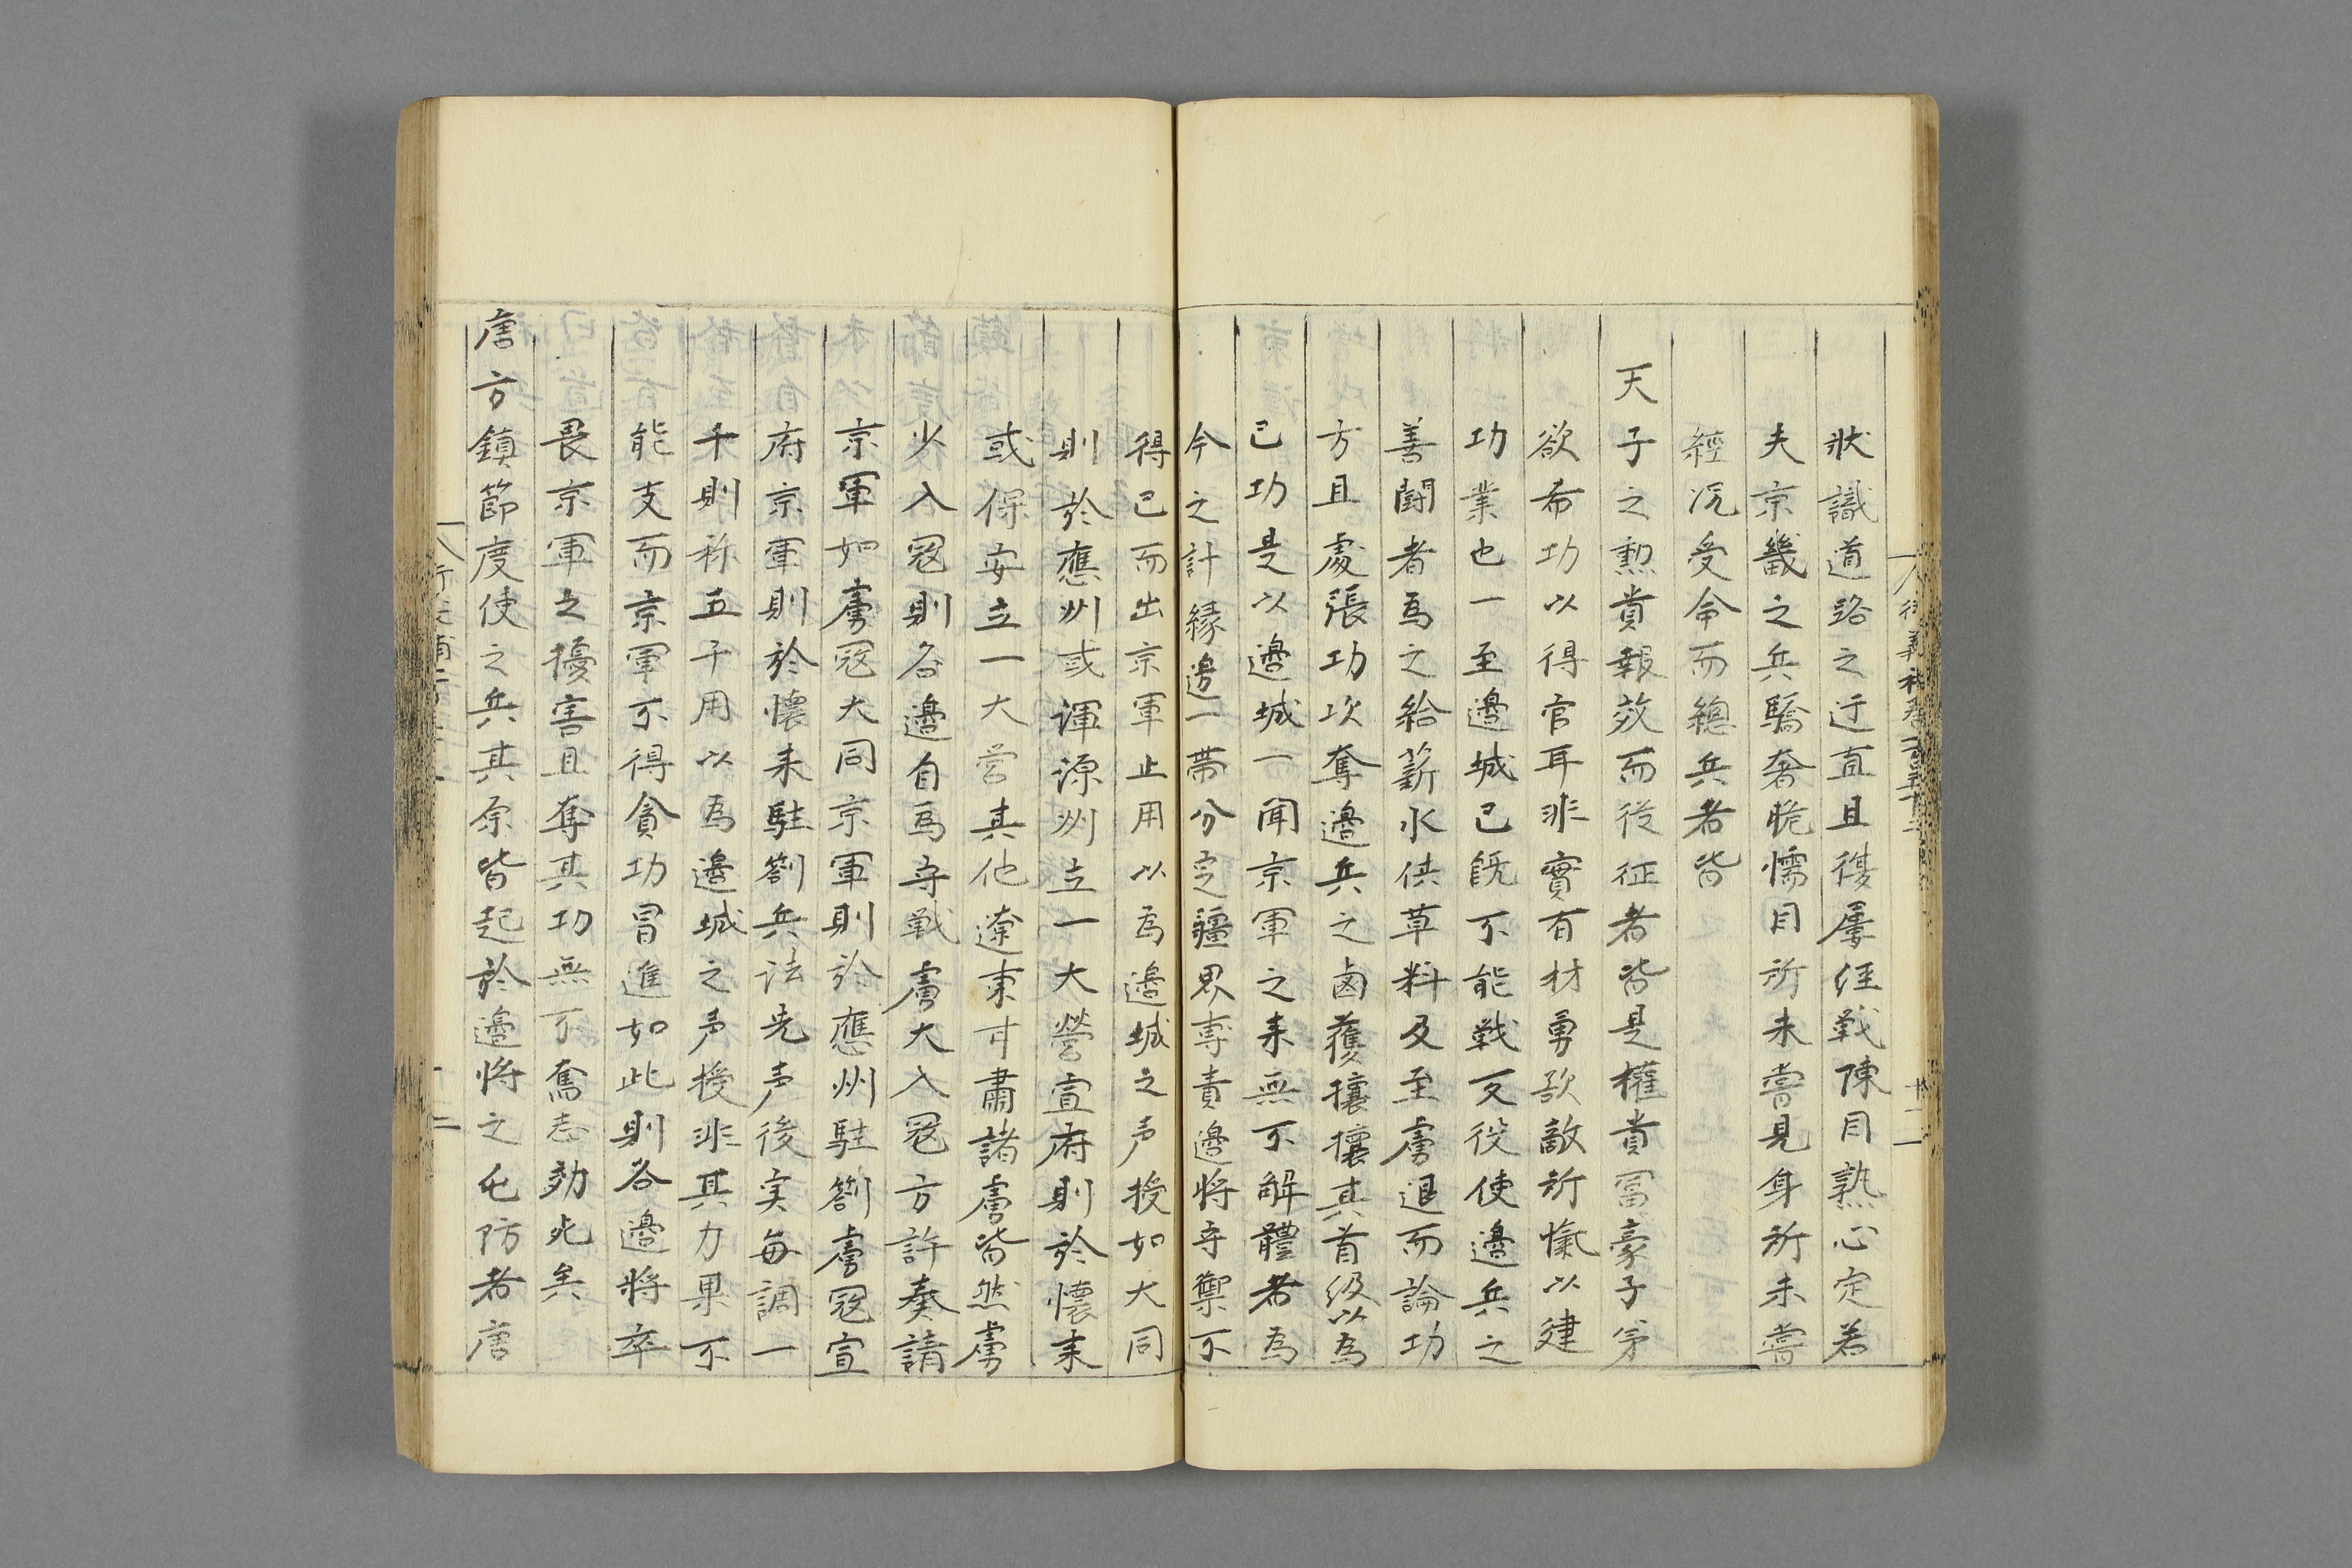 狀識道路之迂直且復屢経戰陳目熟心定若
夫京畿之兵驕奢脆懦目所未嘗見身所未嘗
經况受命而總兵者皆
天子之勲貴報效而從征者皆是權貴冨豪子苐
欲希功以得官耳非實有材勇敵所愾以建
功業也一至邊城已既不能戦反役使邊兵之
善鬪者為之給薪水供草料及至虜退而論功
方且處張功次奪邊兵之鹵獲攘攘其首級以為
已功是以邊城一聞京軍之来無不解體者為
今之計縁邊一帶分定疆界專責邊将守禦不
得已而出京軍止用以為邊城之声授如大同
則於應州或渾源州立一大營宣府則於懷来
或保安立一大営其他遼東甘肅諸虜皆然虜
少入冦則各邊自為守戦虜大入冦方許奏請
京軍如虜冦大同京軍則於應州駐劄虜冦宣
府京軍則於懷来駐劄兵法先声後実每調一
千則称五千用以為邊城之声授非其力果不
能支而京軍不得貪功冒進如此則各邊將卒
畏京軍之擾害且奪其功無不奮志効死矣
唐方鎮節度使之兵其原皆起於邊将之屯防者唐